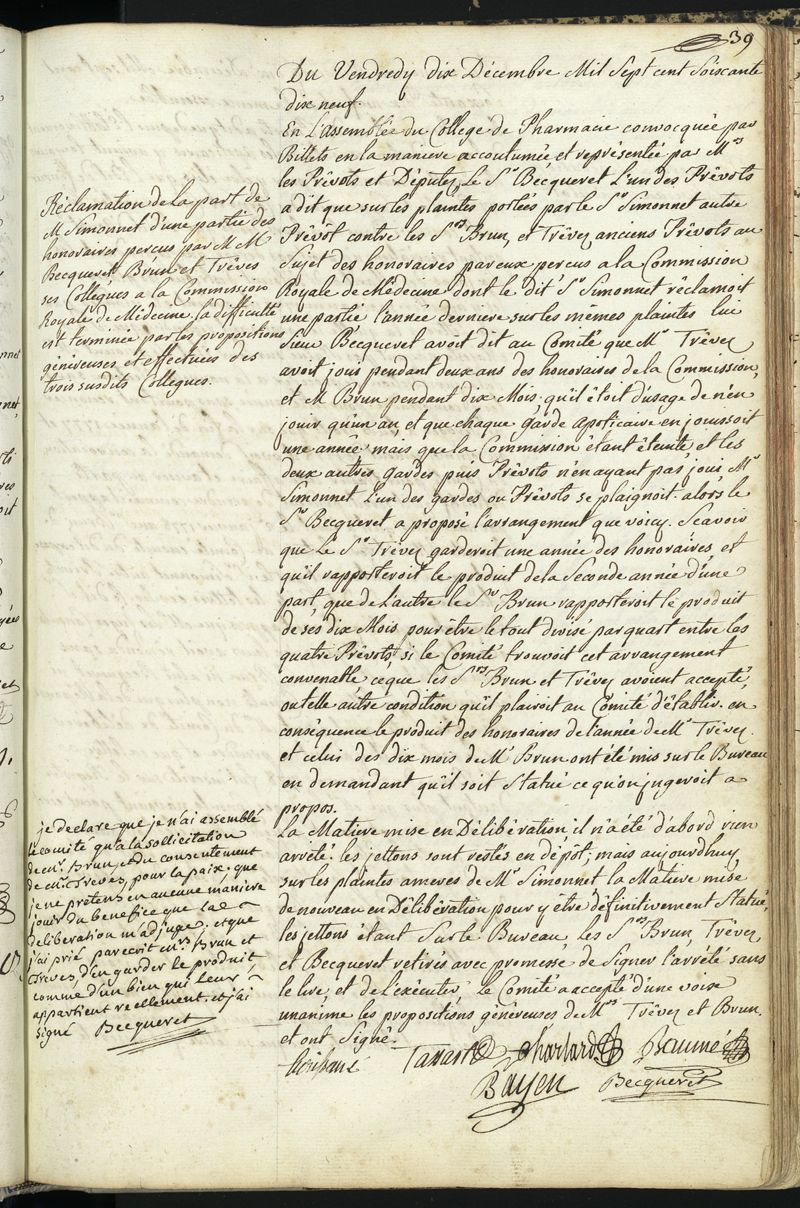 39
Du Vendredy dix Décembre Mil Sept cent Soixante
dix neuf.
En L'assemblée du College de Pharmacie convocquée par
Billets en la maniere accoutumée et représentée par Mrs
les Prévots et Députés, le Sr Becqueret L'un des Prévots
a dit que sur les plaintes portées par le Sr Simonnet autre
Prévôt contre les Srs Brun, et Trévez anciens Prévots au
Sujet des honoraires par eux perçus a la Commission
Royale de Médecine dont le dit Sr Simonnet réclamoit
une partie l'année derniere sur les memes plaintes lui
Sieur Becqueret avoit dit au Comité que Mr Trévez
avoit joui pendant deux ans des honoraires de la Commission,
et M Brun pendant dix Mois qu'il étoit d'usage de n'en
jouir qu'un an, et que chaque garde apoticaire en jouissoit
une année, mais que la Commission étant éteinte, et les
deux autres gardes puis Prévots n'en ayant pas joui Mr
Simonnet L'un des gardes ou Prévots se plaignoit. alors le
Sr Becqueret a proposé l'arrangement que voicy. Scavoir
que Le Sr Trévez garderoit une année des honoraires, et
qu'il rapporteroit le produit de la Seconde année d'une
part, que de L'autre le Sr Brun rapporteroit le produit
de ses dix Mois pour être le tout divisé par quart entre les
quatre Prévots, si le Comité trouvoit cet arrangement
convenable ce que les Srs Brun et Trévez avoient accepté,
ou telle autre condition qu'il plairoit au Comité d'établir. en
conséquence le produit des honoraires de l'année de Mr Trévez
et celui des dix mois de Mr Brun ont été mis sur le Bureau
en demandant qu'il soit Statué ce qu'on jugeroit a
propos.
La Matiere mise en Délibération, il n'a été d'abord rien
arrêté. les jettons sont restés en dépôt; mais aujourdhuy
sur les plaintes ameres de Mr Simonnet la Matiere mise
de nouveau en Délibération pour y être définitivement Statué,
les jettons étant Sur le Bureau les Srs Brun, Trévez,
et Becqueret retirés avec promesse de Signer l'arrêté sans
le lire et de L'exécuter. Le Comité a accepté d'une voix
unanime les propositions généreuses de Mrs Trévez et Brun,
et ont Signé.
Tassart Charlard Baumé
Bayen Becqueret
Réclamation de la part de
M Simonnet d'une partie des
honoraires perçus par M M
Becqueret Brun et Trèves
ses Collégues a la Commission
Royale de Médecine. la difficulté
est terminée par les propositions
généreuses et effectuées des
trois susdits Collegues.
je declare que je n'ai assemblé
le comité qu'a la sollicitation
de mr. Brun, et du consentement
de mr. Treves, pour la paix, que
je ne prétens en aucune maniere
jouir du benefice que la
deliberation m'adjuge, et que
j'ai prié par ecrit mrs. Brun et
Trèves, d'en garder le produit,
comme d'un bien qui leur
appartient reellement. et j'ai
signé Becqueret